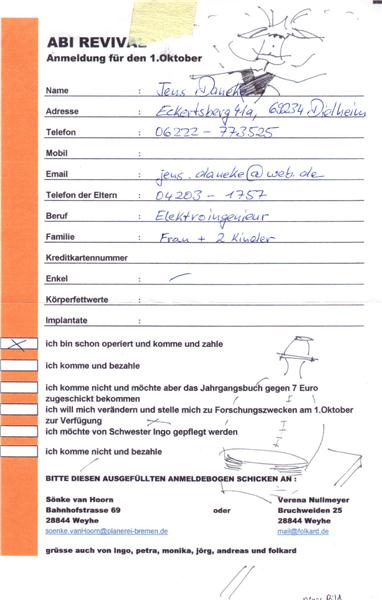 ABI REVIVAL
Anmeldung für den 1.Oktober
Name : Jens Daneke
Adresse : Eckertsberg 41a, 69234 Dielheim
Telefon : 06222 - 773525
Mobil :
Email : jens.daneke@web.de
Telefon der Eltern : 04203 - 1757
Beruf : Elektroingenieur
Familie : Frau + 2 Kinder
Kreditkartennummer
Enkel : —
Körperfettwerte :
Implantate :
X ich bin schon operiert und komme und zahle
ich komme und bezahle
ich komme nicht und möchte aber das Jahrgangsbuch gegen 7 Euro
zugeschickt bekommen
ich will mich verändern und stelle mich zu Forschungszwecken am 1.Oktober
zur Verfügung
ich möchte von Schwester Ingo gepflegt werden
ich komme nicht und bezahle
BITTE DIESEN AUSGEFÜLLTEN ANMELDEBOGEN SCHICKEN AN :
Sönke van Hoorn
Bahnhofstrasse 69
28844 Weyhe
soenke.vanHoorn@planerei-bremen.de
oder
Verena Nullmeyer
Bruchweiden 25
28844 Weyhe
mail@folkard.de
grüsse auch von ingo, petra, monika, jörg, andreas und folkard